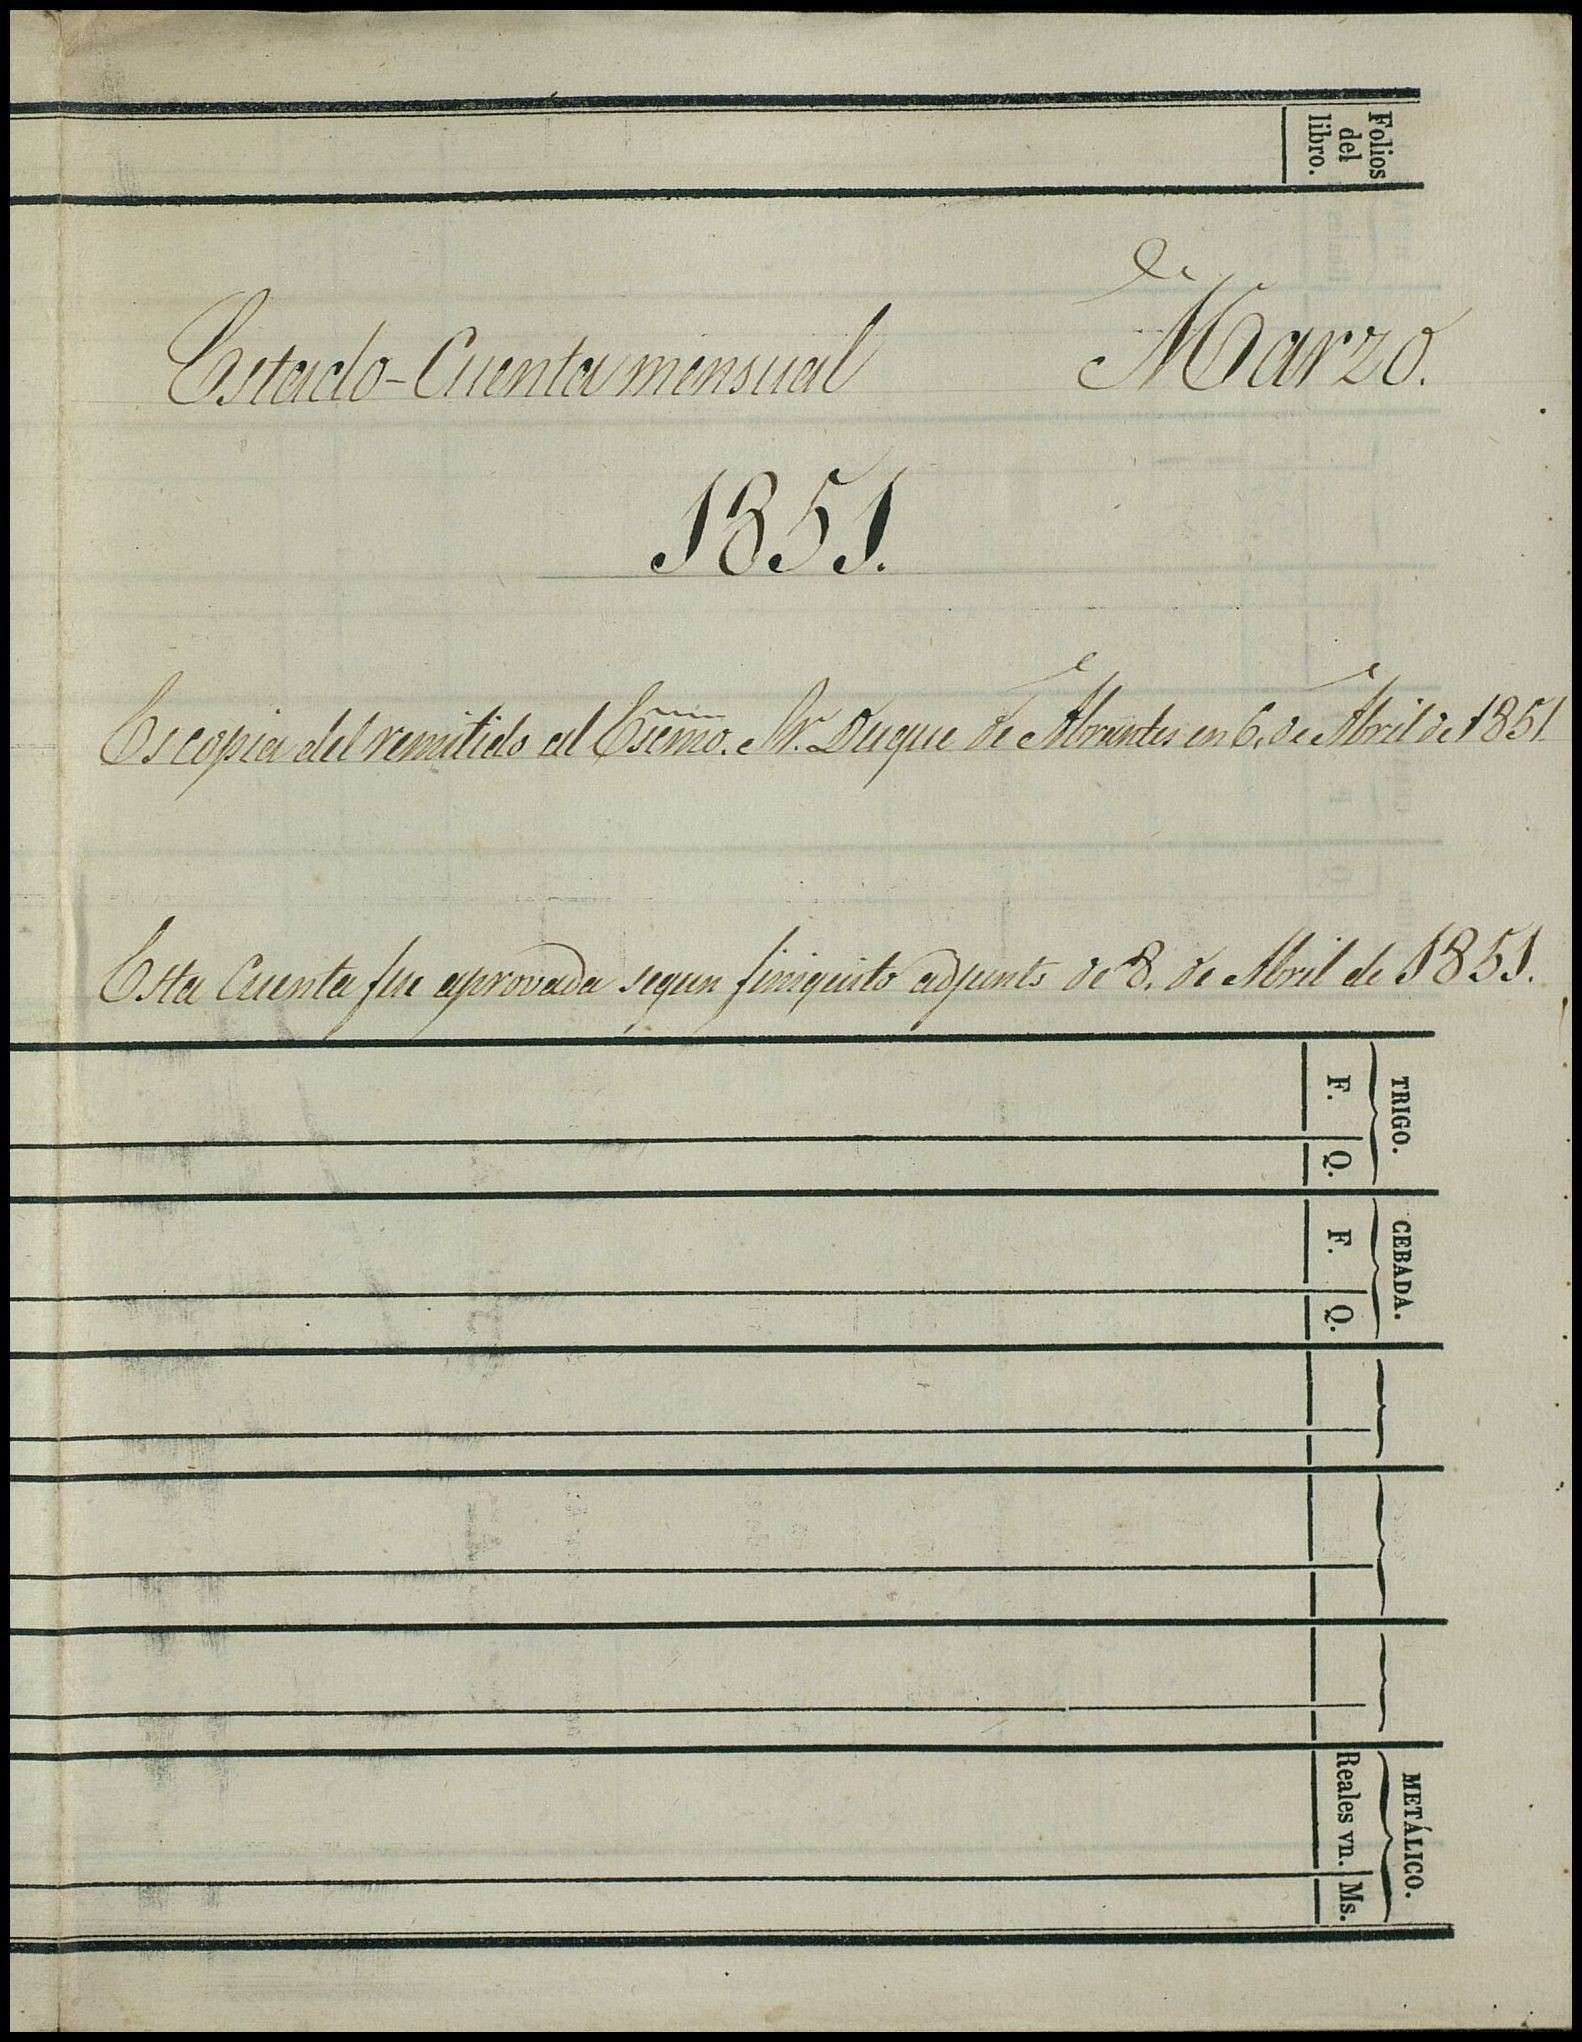 Folios
del
libro.
Estado-Cuenta mensual de Marzo.
1851.
Es copia del remitido al Escmo. Sr. Duque de Abrantes en 6, de Abril de 1851.
Esta Cuenta fue aprovada segun finiquito adjunto de 8. de Abril de 1851.
TRIGO.
F. Q.
CEBADA.
F. Q.
METÁLICO.
Reales vn. Ms.